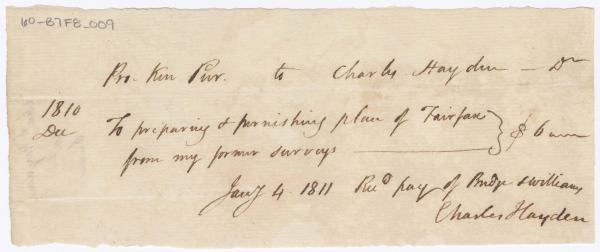 60-B7F8_009
Pro. Ken Pur. to Charles Hayden — Dr
1810
Dec
To preparing & furnishing plan of Fairfax
from my former surveys — } $ 6
Jany 4. 1811 Recd pay of Bridge & Williams
Charles Hayden